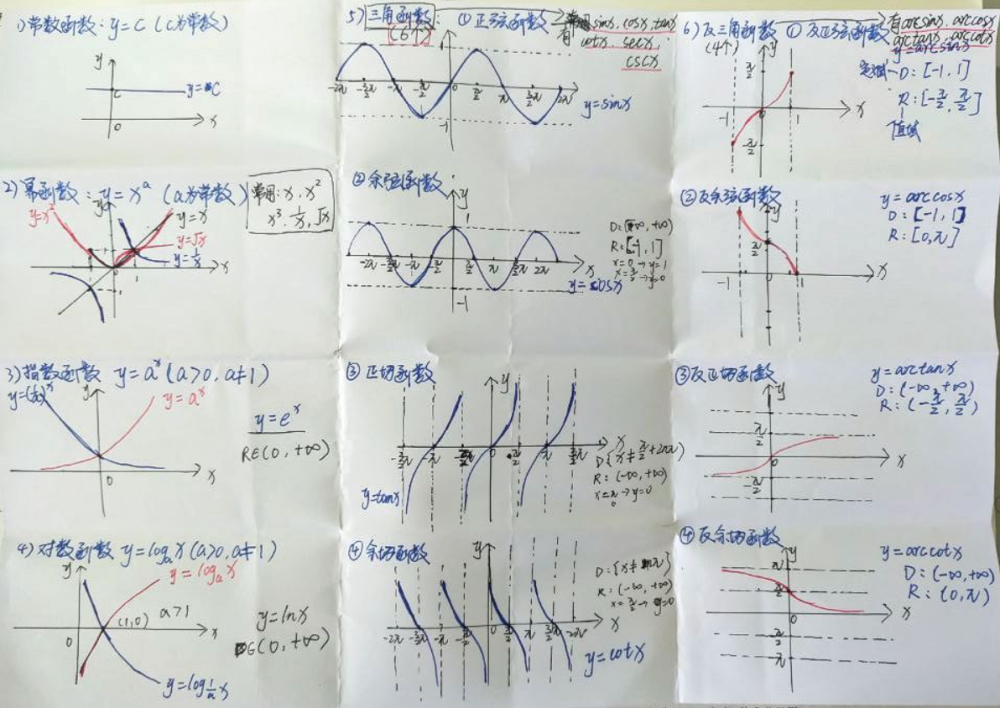 1) 常数函数: y=C (C为常数)
y
C
y=C
0
x
2) 幂函数: y=x^a (a为常数)
常用: x, x²
x³, 1/x, √x
y
y=x²
y=x
y=√x
y=1/x
1
1
x
3) 指数函数 y=a^x (a>0, a≠1)
y
y=a^x
y=e^x
R∈(0, +∞)
0
x
4) 对数函数 y=logₐx (a>0, a≠1)
y
y=logₐx
(1,0)
a>1
y=lnx
∈(0, +∞)
0
x
y=log 1/a x
5) 三角函数: ① 正弦函数
(6个)
有 sinx, cosx, tanx
cotx, secx,
cscx
y
1
-2π -3/2π -π -π/2 0 π/2 π 3/2π 2π x
-1
y=sinx
② 余弦函数
y
1
D: (-∞, +∞)
R: [-1, 1]
x=0 → y=1
x=π/2 → y=0
-2π -3/2π -π -π/2 π/2 π 3/2π 2π x
-1
y=cosx
③ 正切函数
y
-3/2π -π -π/2 0 π/2 π 3/2π x
D{x≠π/2+2πλ)
R: (-∞, +∞)
y=tanx
④ 余切函数
y
D: {x≠
R: (-∞, +∞)
x=π/2 → y=0
-2π -3/2π -π -π/2 0 π/2 π 3/2π 2π x
y=cotx
6) 反三角函数 ① 反正弦函数
(4个)
有arcsinx, arccosx
arctanx, arccotx
y=arcsinx
定义域—D: [-1, 1]
R: [-π/2, π/2]
值域
y
π/2
-1 0 1 x
-π/2
② 反余弦函数
y=arccosx
D: [-1, 1]
R: [0, π]
y
π/2
-1 1 x
③ 反正切函数
y=arctanx
D: (-∞, +∞)
R: (-π/2, π/2)
y
π/2
0
x
-π/2
④ 反余切函数
y=arccotx
D: (-∞, +∞)
R: (0, π)
y
π
π/2
x
-π/2
-π